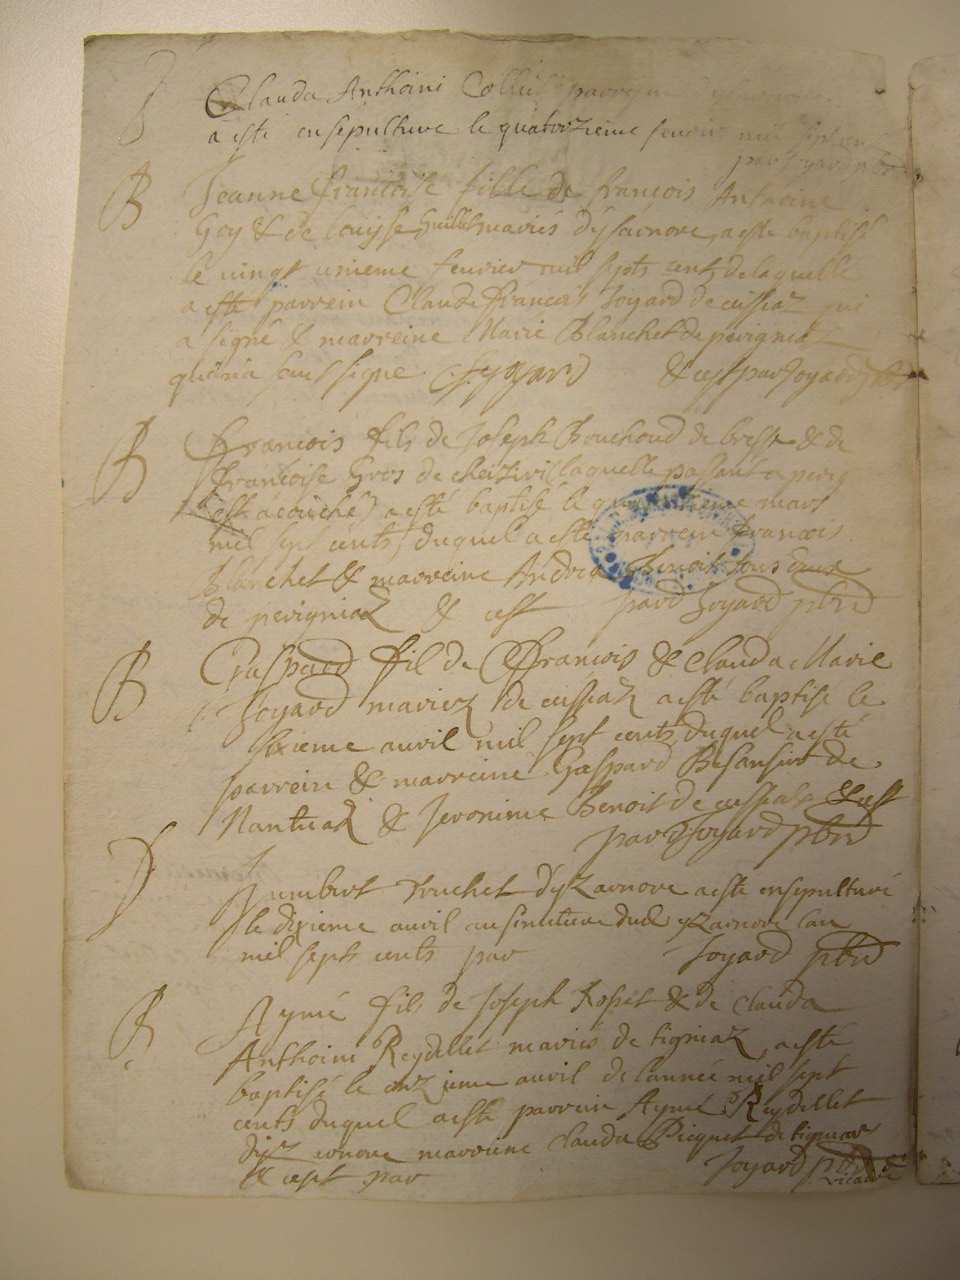 Clauda Anthoini
a esté ensepulture le quatorzieme mil sept cent
par Joyard pbre
B
Jeanne francoise fille de françois Anthoine
Goy & de louyse Guillet mariés dysarnore, a esté baptisé
le vingt unieme feuvrier mil septs cent de laquelle
a esté parrein Claude francois Joyard de cussiaz qui
a signé & marreine Marie Blanchet de perigniaz
qui na sceus signe C. f. Joyard & cest par Joyard pbre
B
francois fils de Joseph Bouchoud de bresse & de
francoise Gros de laquelle passant a perig
est acouché) a esté baptisé le mars
mil sept cents, duquel a esté parrein francois
Blanchet & marreine Benoit tous deux
de perigniaz & cest par Joyard pbre
B
Gaspard fil de francois & clauda Marie
Joyard mariez de cussiaz a esté baptise le
sixieme auril mil sept cents duquel a esté
parrein & marreine Gaspard de
Nantuaz & Jeronime Benoit de cussiaz & cest
par Joyard pbre
Humbert truchet dyzarnore a esté ensepulturé
le dixieme auril au simitiere dud yzarnore lan
mil septs cents par Joyard pbre
B
Aymé fils de Joseph Rosset & de clauda
Anthoini Reydellet mariés de tigniaz a esté
baptisé le onzieme auril de lannee mil sept
cents duquel a esté parrein Aymé Reydellet
dyzernore marreine clauda Picquet de tigniaz
& cest par Joyard pbre
vicaire